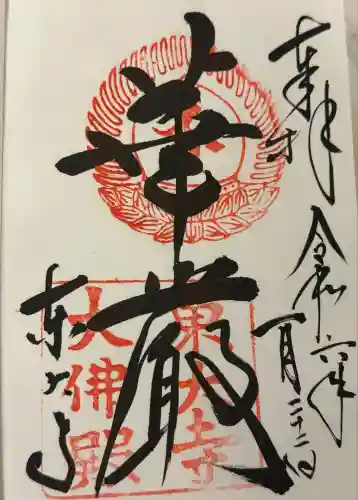 奉拝 令和六年一月二十二日
華厳
東大寺
東大寺
大佛殿